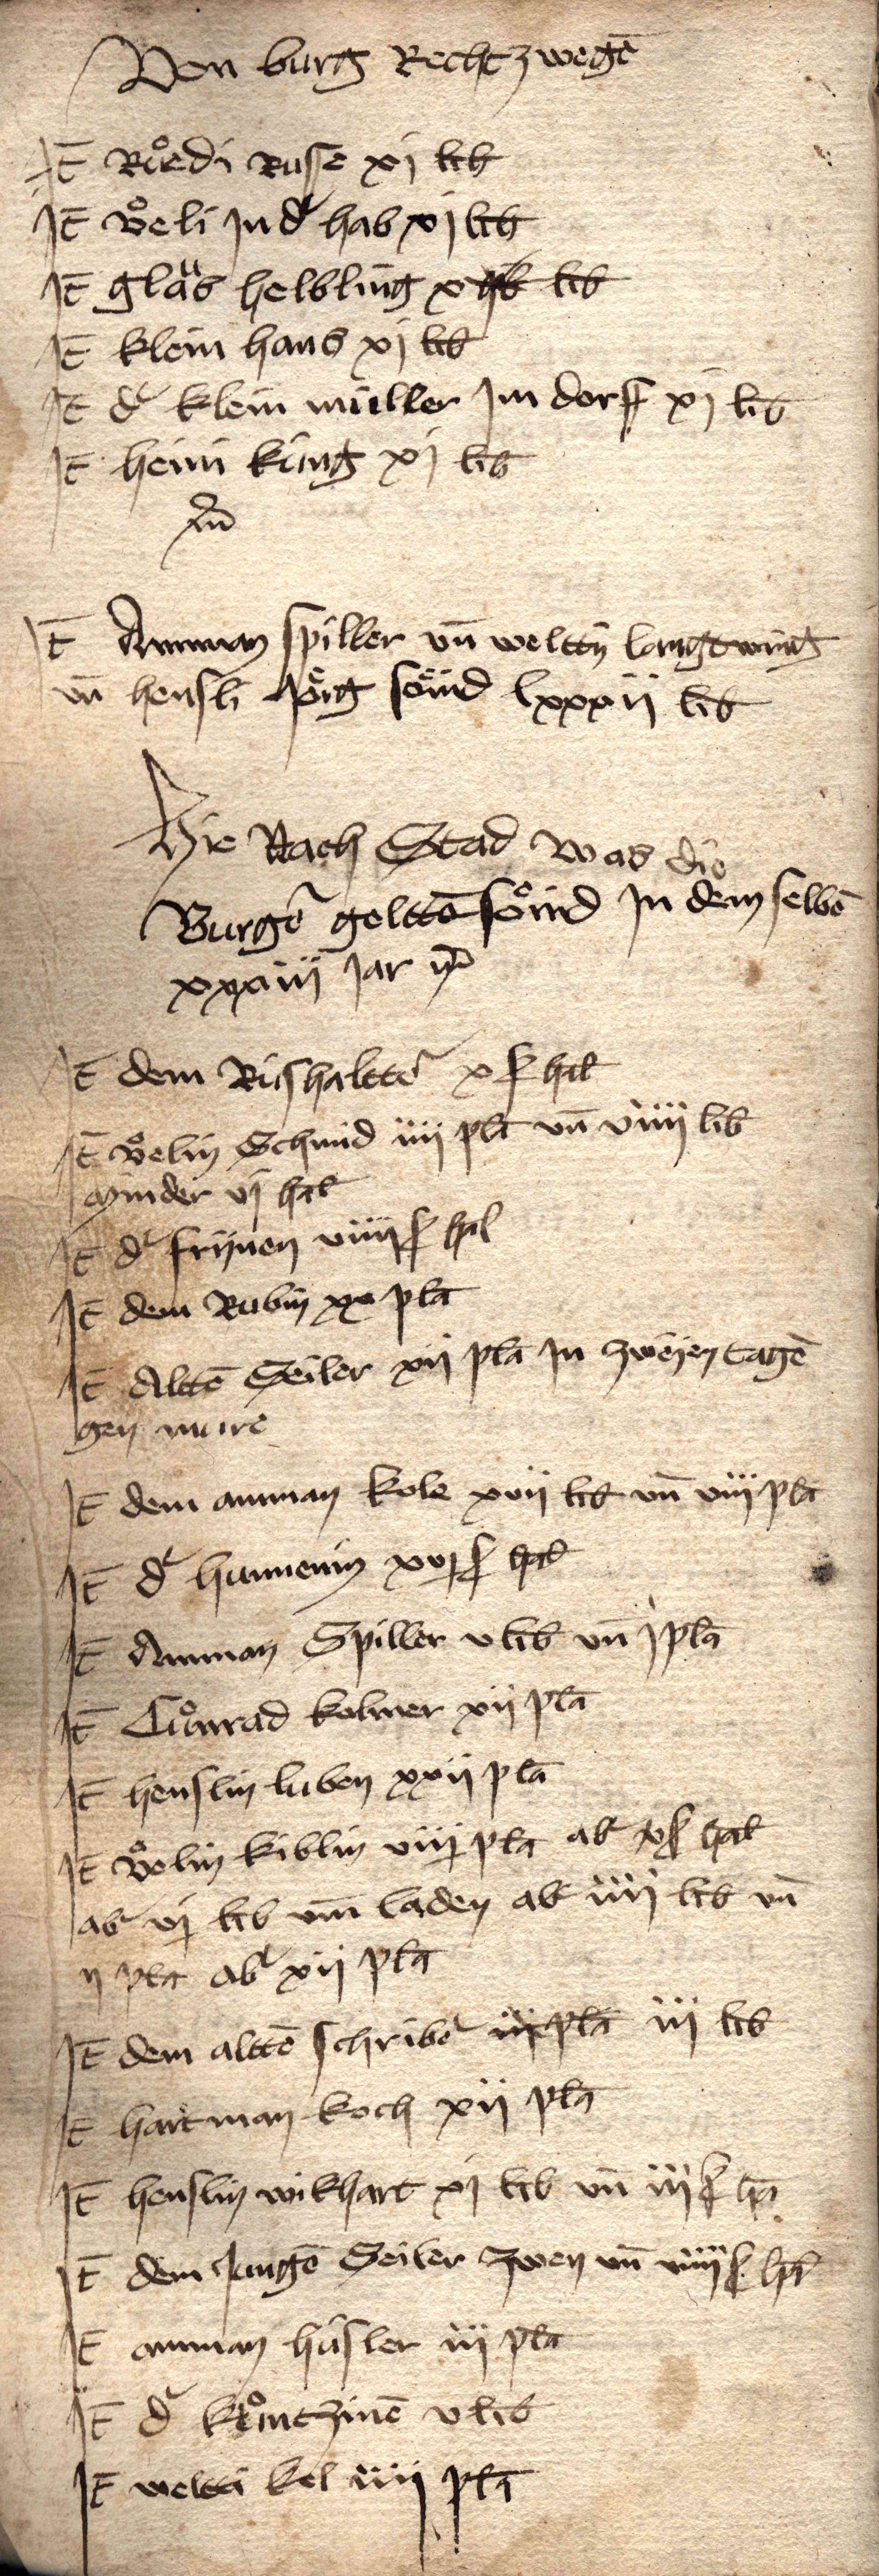 Von burg Rechtz wegē
It̄ Růedi Ruse xj lib
It̄ ůeli Jn d' hab xj lib
It̄ gläs helbling x lib
It̄ klein hans xj lib
It̄ d' klein müller Jm dorf xj lib
It̄ heini küng xj lib
It̄ Amman spiller vn̄ weltty langtwing
vn̄ hensli Jörg sönd lxxxij lib
Hie Nach Stad was die
Burg' gelttē sönd Jn dem selbē
xxxiiij Jar
It̄ dem Rishaltt' x ß hal
It̄ ůelin Schmid iiij pla vn̄ viiij lib
minder vj hal
It̄ d' frijnen viiij ß hal
It̄ dem Rubin xx pla
It̄ Alttē Seiler xij pla Jn zweijen tagē
gen mure
It̄ dem amman kole xvij lib vn̄ viij pla
It̄ d' hunnenin xvj ß hal
It̄ Amman Spiller v lib vn̄ j pla
It̄ Cůnrad kolmer xij pla
It̄ henslin luben xxij pla
It̄ ůelin kiblin viij pla ab' x ß hal
ab' vj lib vm̄ laden ab' iiij lib vn̄
ij pla ab' xij pla
It̄ dem alttē schrib' iij pla iij lib
It̄ hartman koch xij pla
It̄ henslin wikhart xj lib vn̄ iij ß hal
It̄ dem Jungē Seiler zwen vn̄ viiij ß hal
It̄ amman hüsler iij pla
It̄ d' kůntzinē v lib
It̄ weltti kel iiij pla